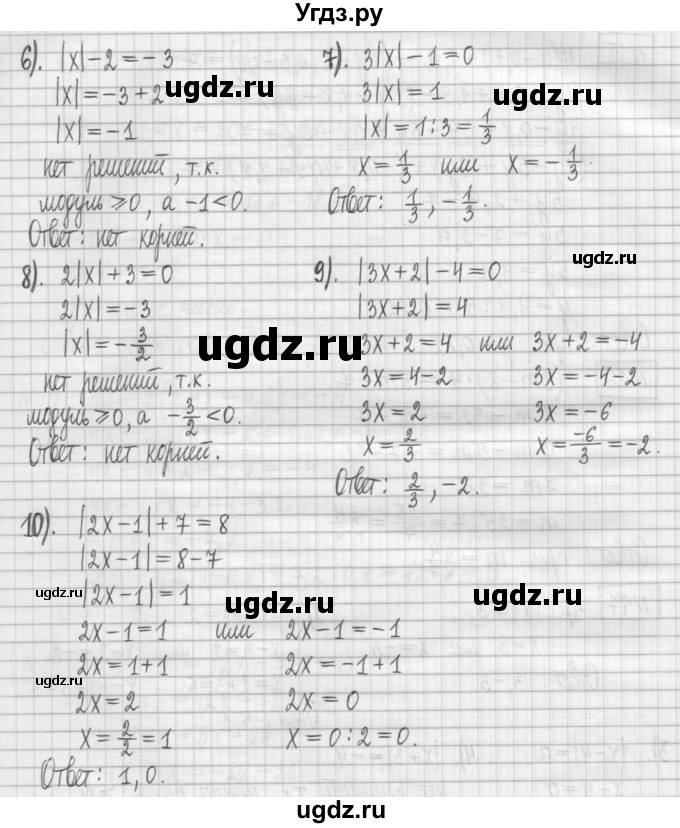 Угдз.ру
6). |x|-2=-3
|x|=-3+2
|x|=-1
нет решений, т.к.
модуль ≥0, а -1<0.
Ответ: нет корней.
7). 3|x|-1=0
3|x|=1
ugdz.ru
|x|=1:3=1/3
x=1/3 или x=-1/3.
Ответ: 1/3, -1/3.
ugdz.ru
8). 2|x|+3=0
2|x|=-3
|x|=-3/2
нет решений, т.к.
модуль ≥0, а -3/2<0.
Ответ: нет корней.
ugdz.ru
9). |3x+2|-4=0
|3x+2|=4
3x+2=4 или 3x+2=-4
3x=4-2 3x=-4-2
3x=2 3x=-6
x=2/3 x=-6/3=-2.
Ответ: 2/3, -2.
ugdz.ru
10). |2x-1|+7=8
|2x-1|=8-7
ugdz.ru |2x-1|=1
ugdz.ru
ugdz.ru
2x-1=1 или 2x-1=-1
2x=1+1 2x=-1+1
ugdz.ru
2x=2 2x=0
x=2/2=1 x=0:2=0.
Ответ: 1, 0.
ugdz.ru